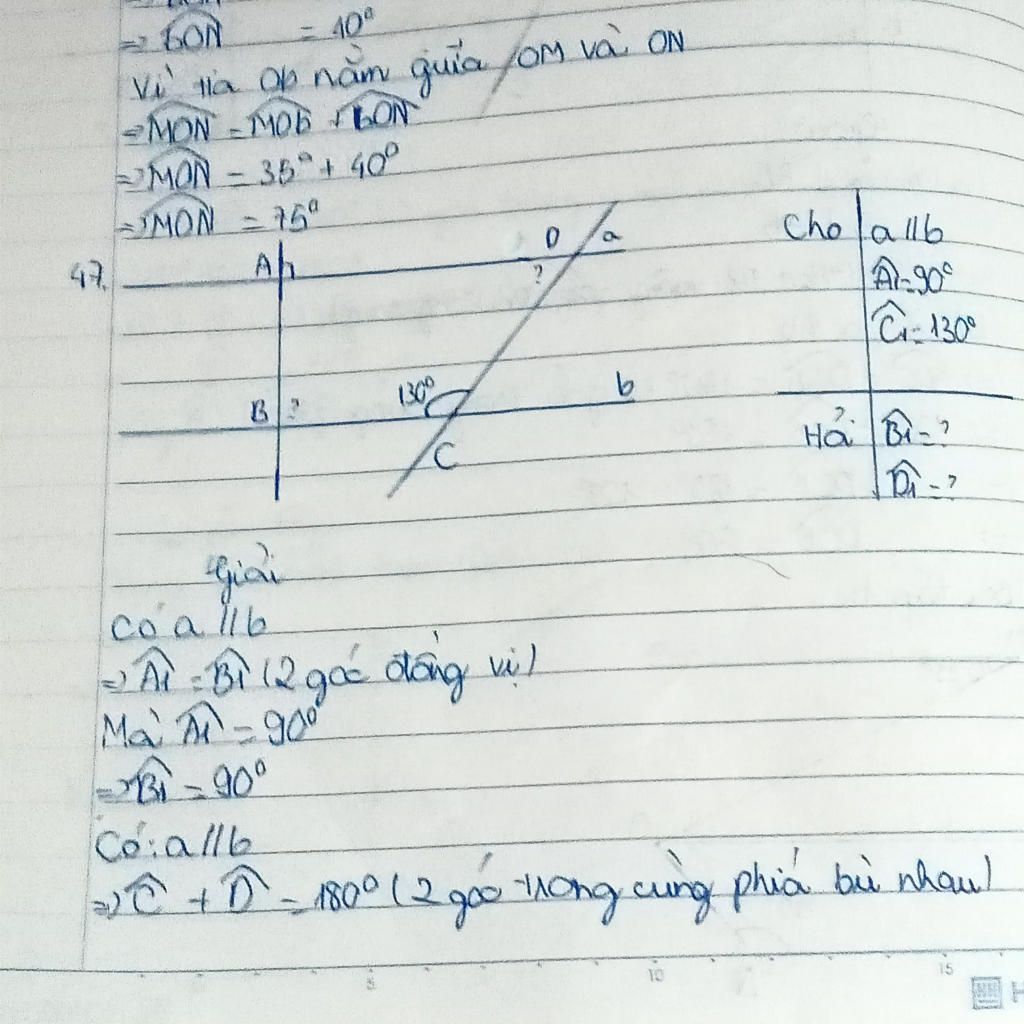 ⇒ bON = 40°
Vì tia Ob nằm giữa OM và ON
⇒ MON = MOb + bON
⇒ MON = 35° + 40°
⇒ MON = 75°
47.
A 1
D a
?
130°
B ?
b
C
Cho a // b
A1 = 90°
C1 = 130°
Hỏi B1 = ?
D1 = ?
Giải
Có a // b
⇒ A1 = B1 (2 góc đồng vị)
Mà A1 = 90°
⇒ B1 = 90°
Có: a // b
⇒ C + D = 180° (2 góc trong cùng phía bù nhau)
5 10 15